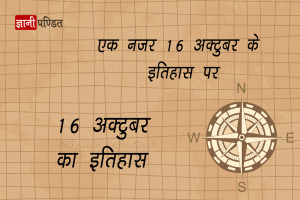 ज्ञानी पण्डित
एक नजर 16 अक्टुबर के
इतिहास पर
16 अक्टुबर
का इतिहास
N
W
E
S